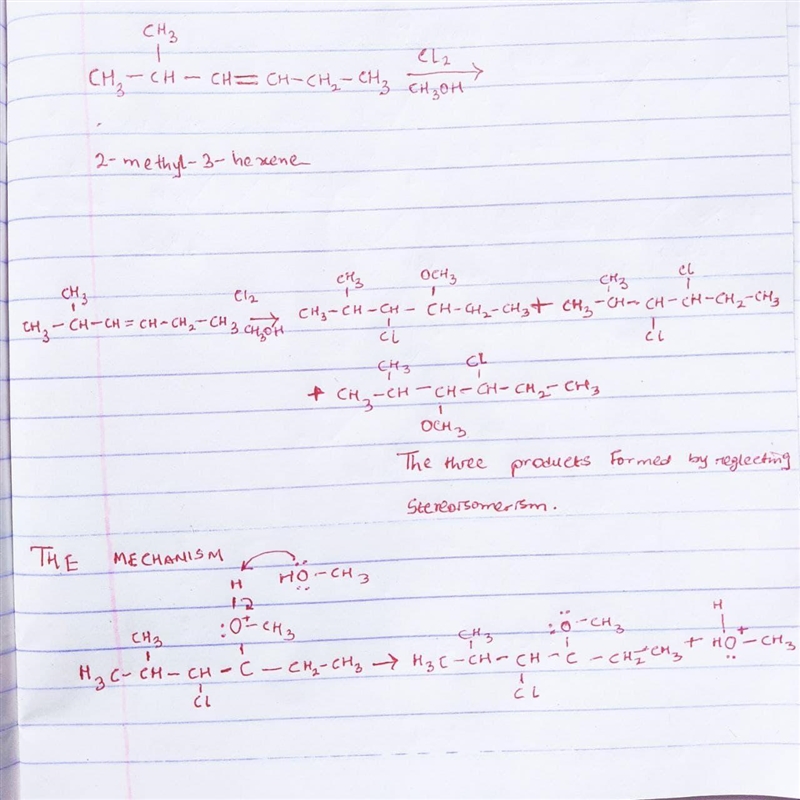 CH3
|
CH3 – CH – CH = CH – CH2 – CH3 Cl2 → CH3OH
2-methyl-3-hexene
CH3 – CH(CH3) – CH = CH – CH2 – CH3 Cl2 → CH3OH CH3 – CH(CH3) – CH(Cl) – CH(OCH3) – CH2 – CH3 + CH3 – CH(CH3) – CH(Cl) – CH(Cl) – CH2 – CH3
+ CH3 – CH(CH3) – CH(OCH3) – CH(Cl) – CH2 – CH3
The three products formed by neglecting
Stereoisomerism.
THE MECHANISM
H HÖ – CH3
:O+ – CH3 :Ö – CH3 H
CH3 CH3
H3C – CH – CH – C – CH2 – CH3 → H3C – CH – CH – C – CH2 – CH3 + HO+ – CH3
Cl Cl